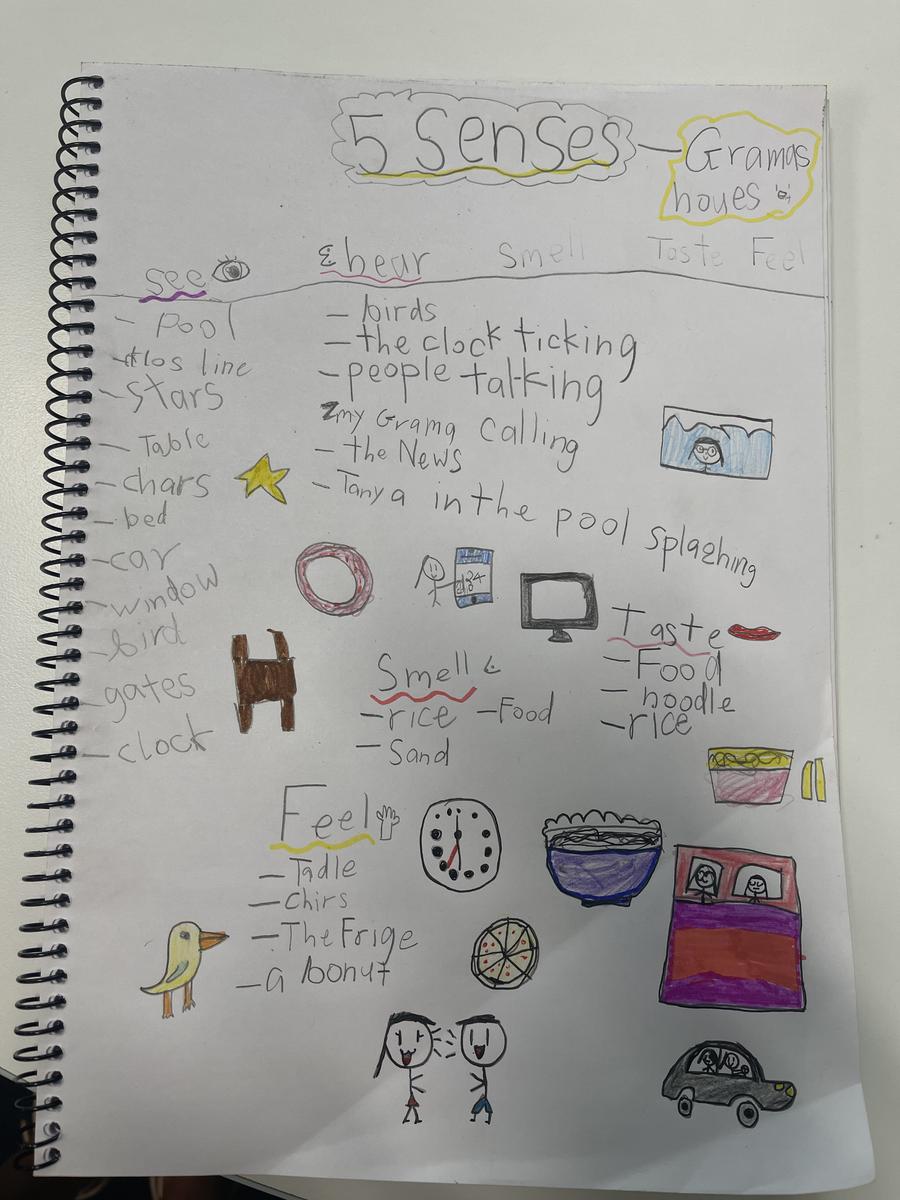 5 Senses — Gramas
houes
see
& hear
Smell
Taste
Feel
- pool
- clos line
- stars
- Table
- chars
- bed
- car
- window
- bird
- gates
- clock
- birds
- the clock ticking
- people talking
- my Grama calling
- the News
- Tanya in the pool splashing
Taste
- Food
- noodle
- rice
Smell
- rice - Food
- Sand
Feel
- Tadle
- Chirs
- The Frige
- a bonut